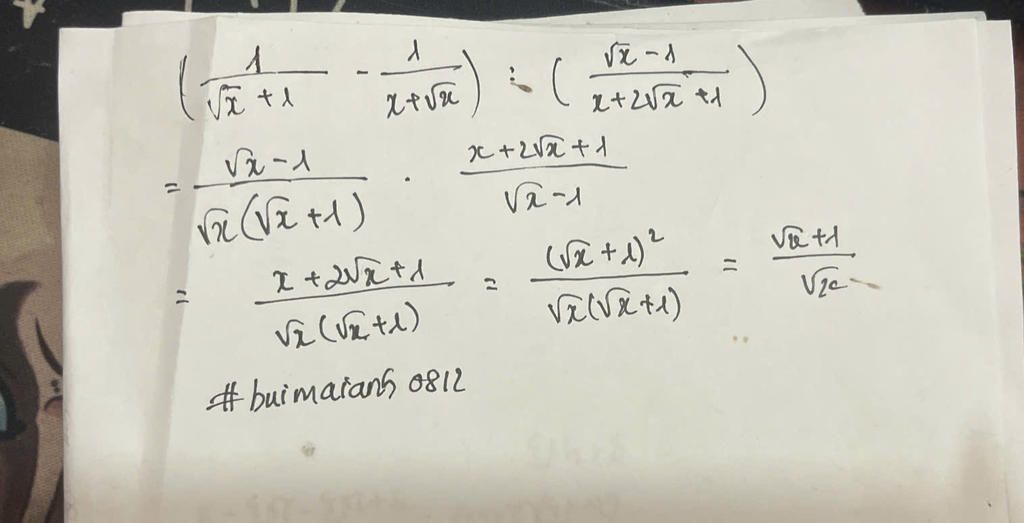 ( 1/(√x + 1) - 1/(x+√x) ) : ( (√x - 1)/(x+2√x +1) )
= (√x - 1)/(√x(√x +1)) . (x+2√x+1)/(√x-1)
= (x+2√x+1)/(√x(√x+1)) = (√x+1)²/(√x(√x+1)) = (√x+1)/√x
#buimaianh 0812